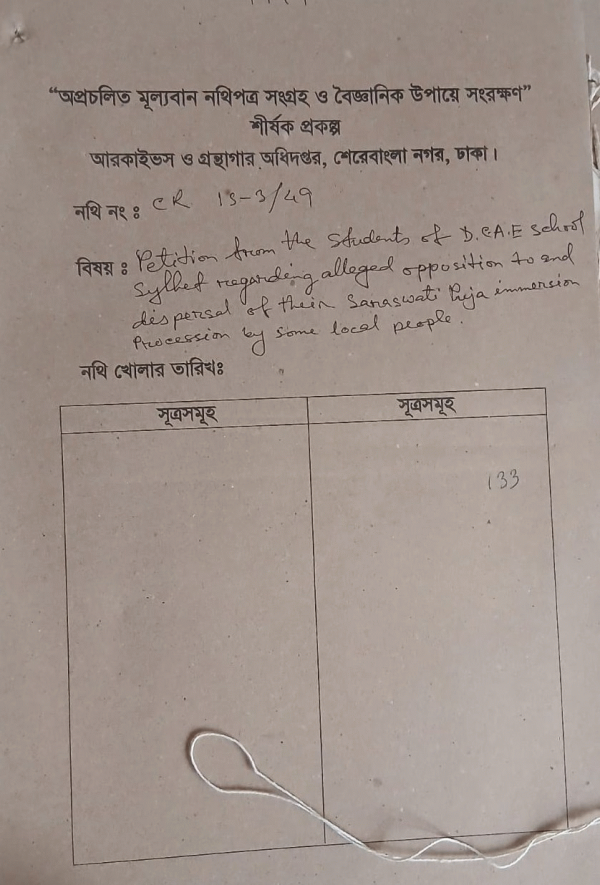 “অপ্রচলিত মূল্যবান নথিপত্র সংগ্রহ ও বৈজ্ঞানিক উপায়ে সংরক্ষণ”
শীর্ষক প্রকল্প
আরকাইভস ও গ্রন্থাগার অধিদপ্তর, শেরেবাংলা নগর, ঢাকা।
নথি নং : CR 1S-3/49
বিষয় : Petition from the Students of D.C.A.E School
Sylhet regarding alleged opposition to and
dispersal of their Saraswati Puja immersion
Procession by some local people.
নথি খোলার তারিখঃ
সূত্রসমূহ সূত্রসমূহ
133